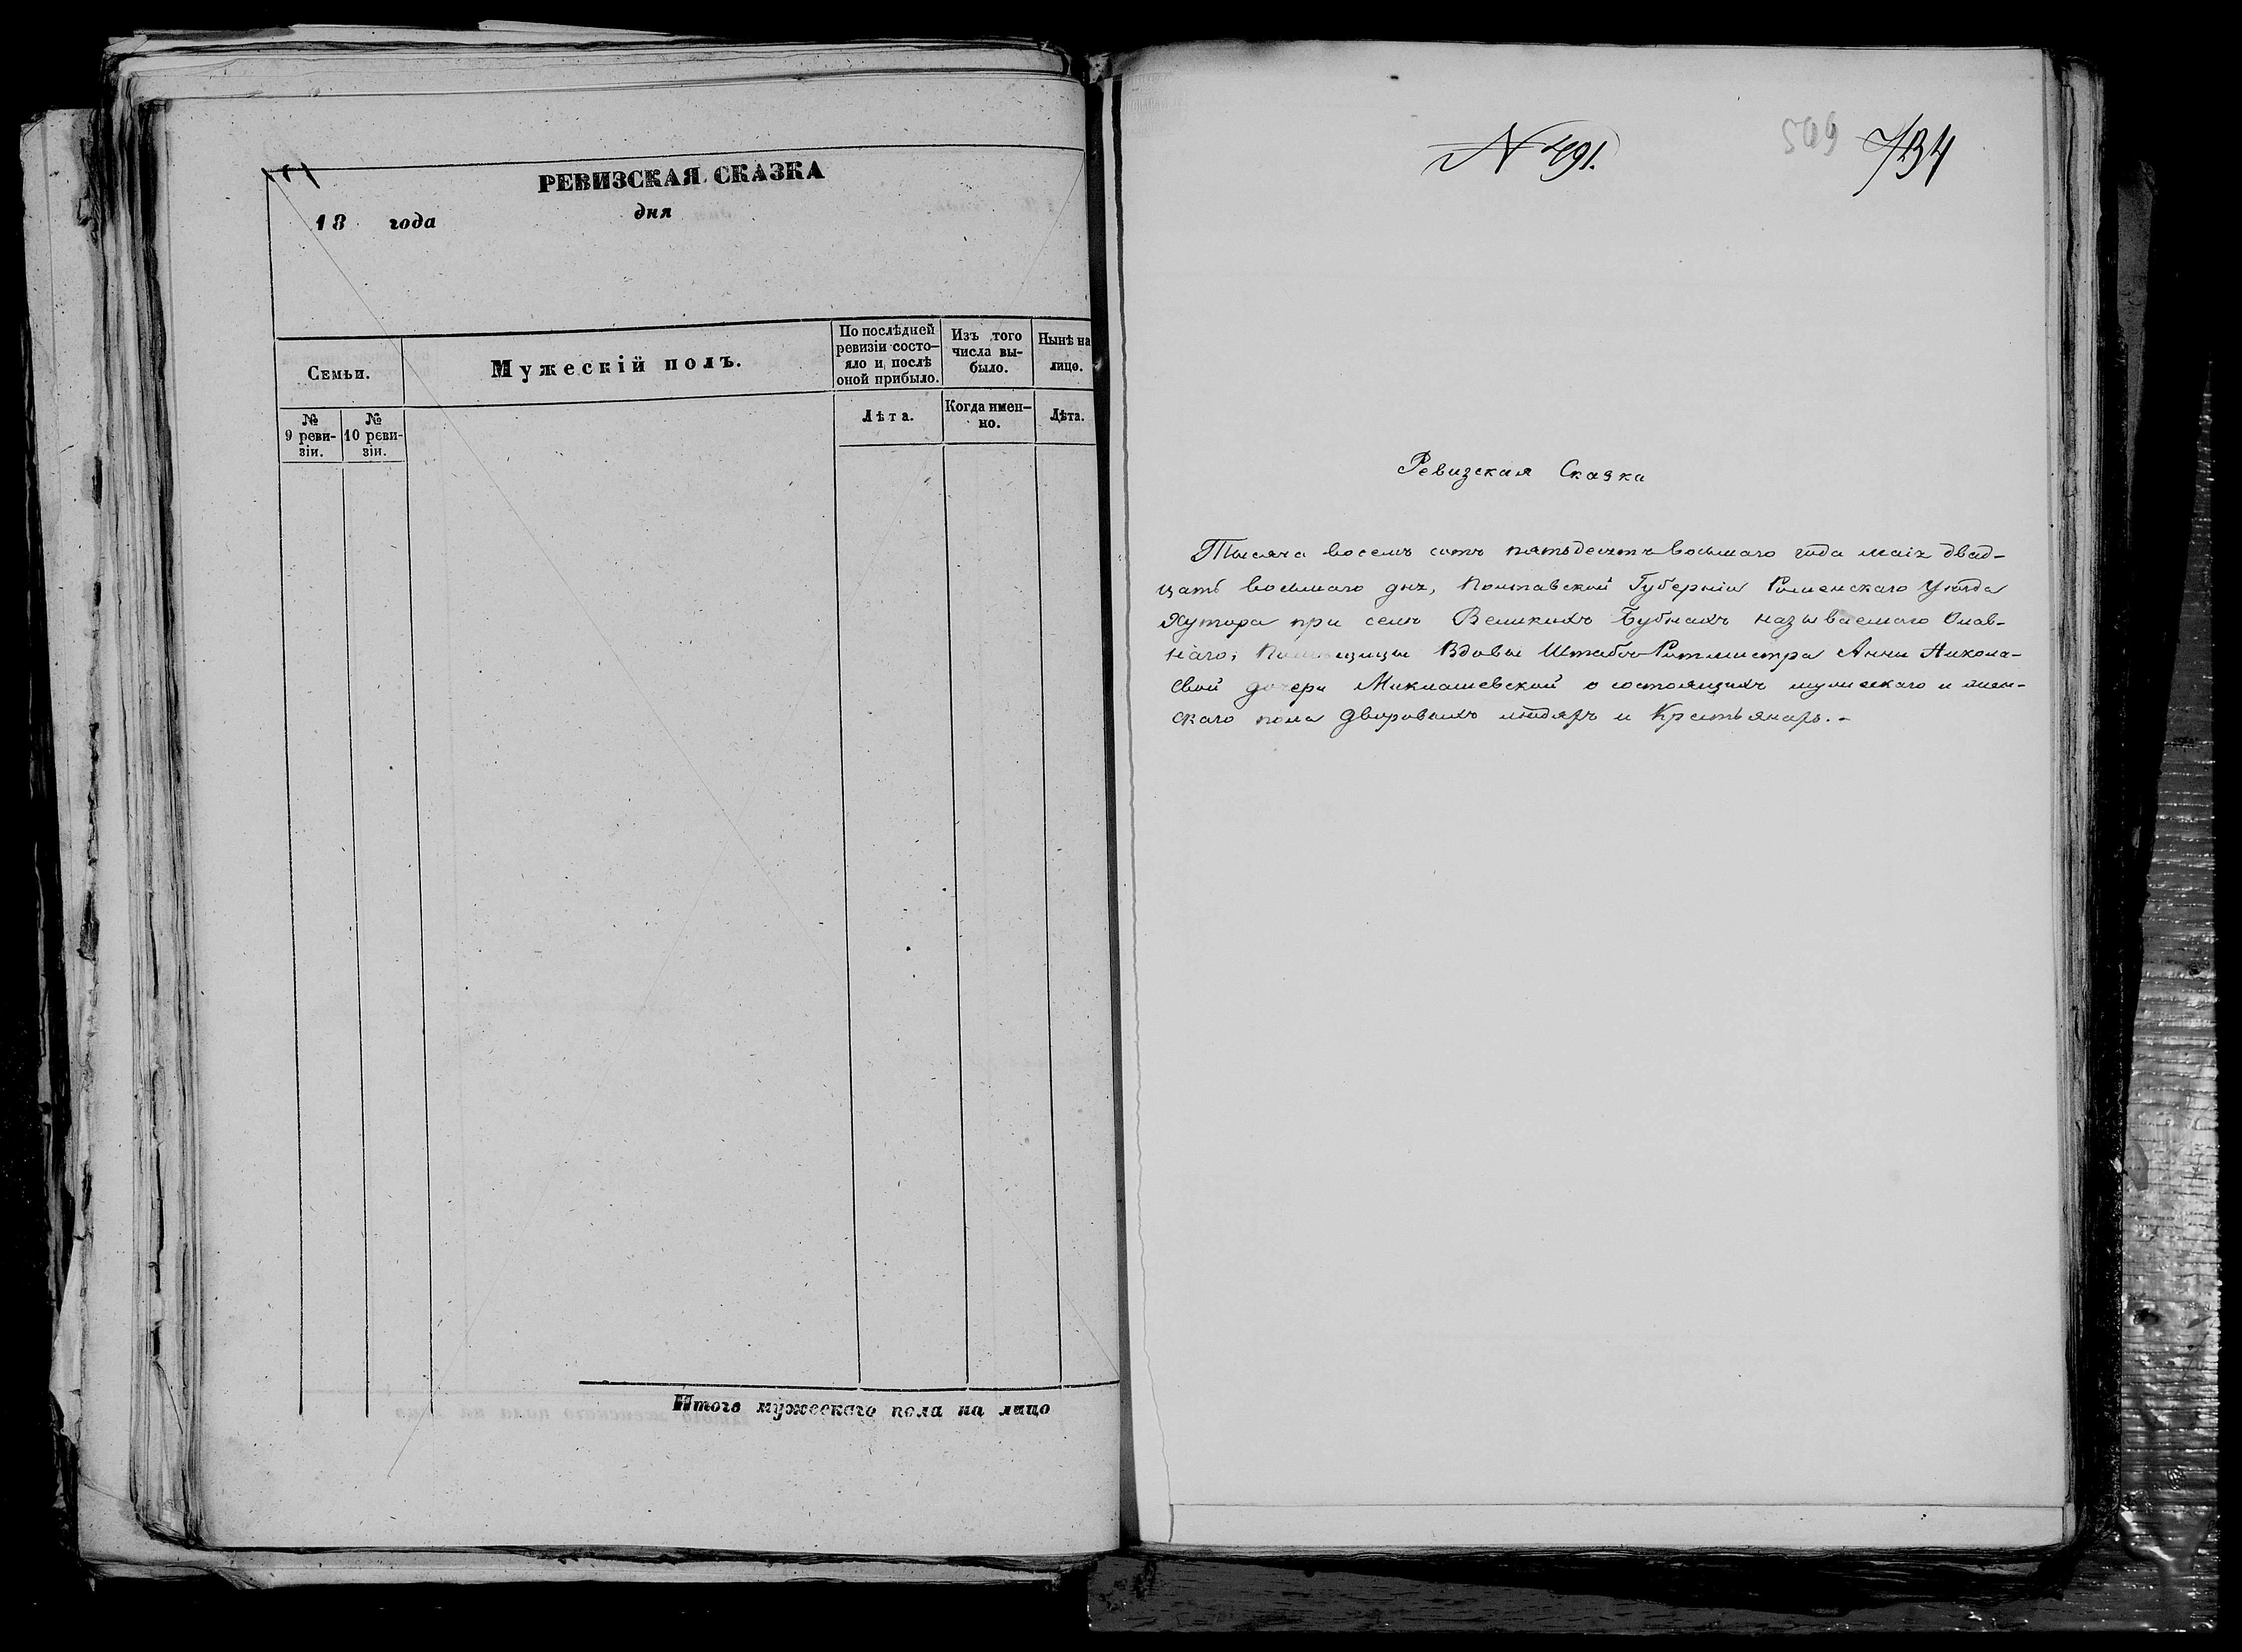 РЕВИЗСКАЯ СКАЗКА
18 года дня
Семьи.
Мужескій полъ.
По послѣдней ревизіи состо-яло и послѣ оной прибыло.
Изъ того числа вы-было.
Нынѣ на лицо.
№ 9 реви-зіи.
№ 10 реви-зіи.
Лѣта.
Когда имен-но.
Лѣта.
Итого мужескаго пола на лицо
N 491.
509 734
Ревизская Сказка
Тысяча восемь сотъ пятьдесятъ восьмаго года маія двад-
цать восьмаго дня, Полтавской Губерніи Роменскаго Уѣзда
Хутора при селѣ Великихъ Бубнахъ называемаго
Вдовы Штабсъ Ротмистра Анны Никола-
евой дочери Миклашевской о состоящихъ мужескаго и жен-
скаго пола дворовыхъ людяхъ и Крестьянахъ.-